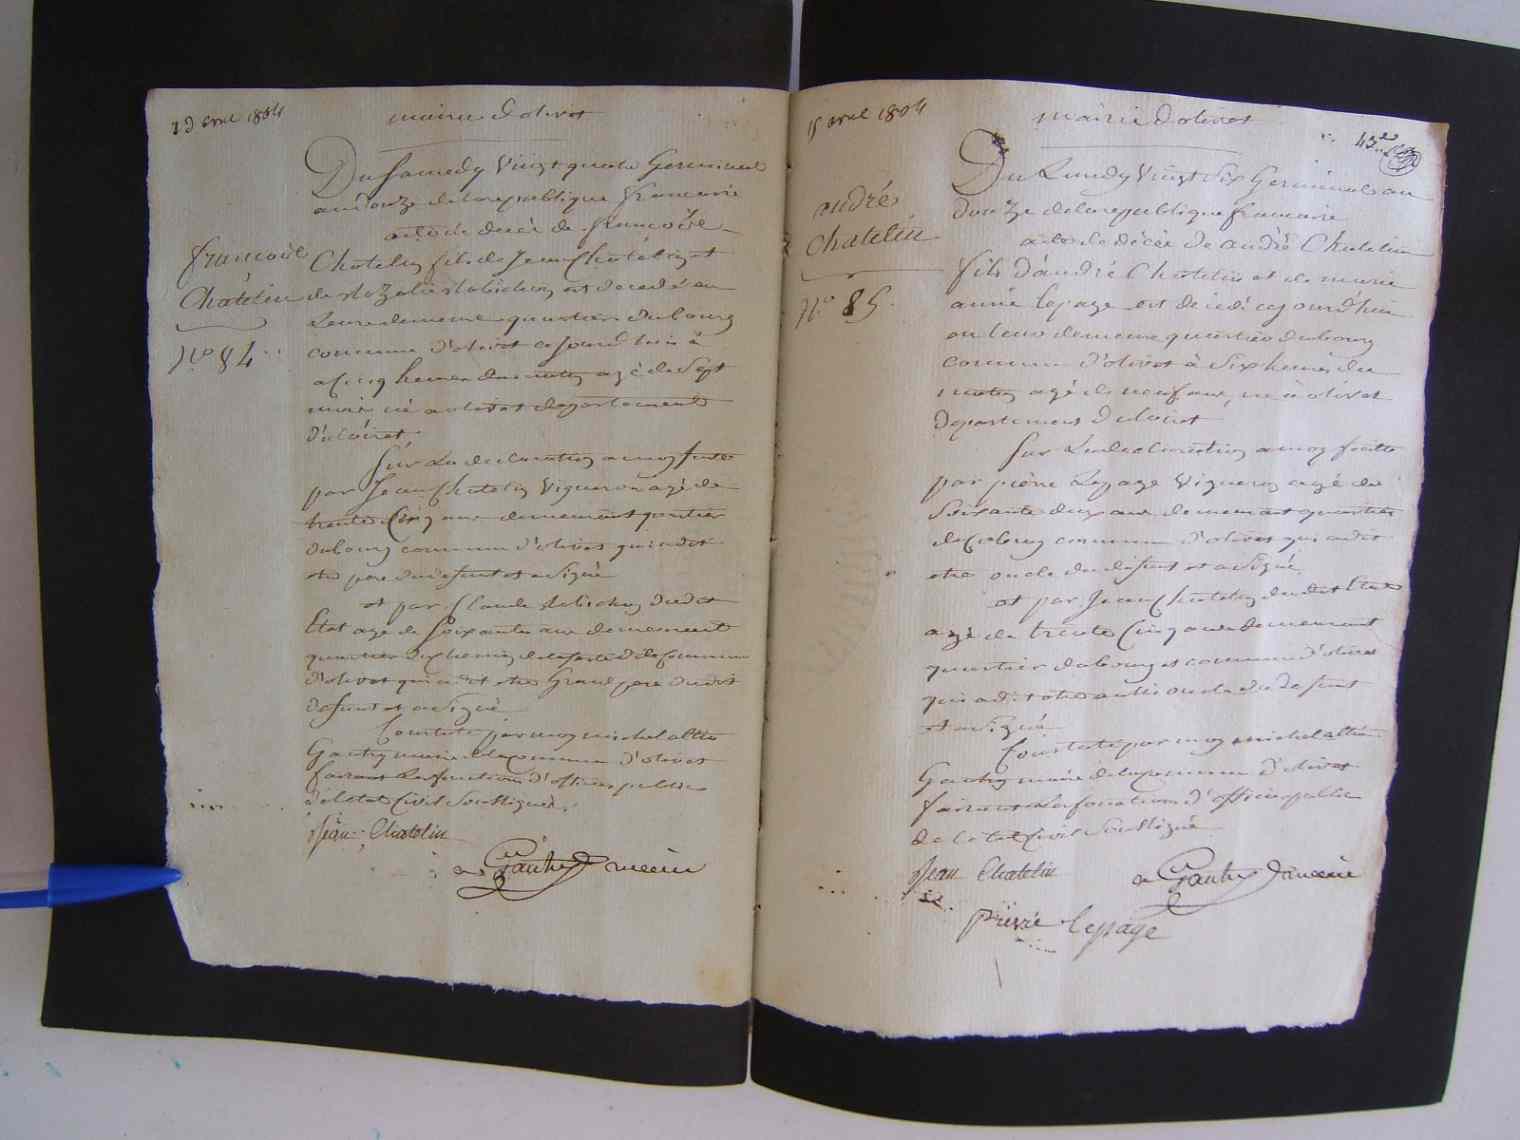 13 avril 1804
mairie d'olivet
Du Samedy Vingt quatre Germinal
an douze de la republique francaise
acte de décès de francoise
francoise
Chatelin fils de Jean Chatelin et
Chatelin
de Rozalie Robichon est decedé en
Leur demeure quartier du bourg
N.º 84
commune d'olivet ce jourd'huis à
a Cinq heures du matin agé de Sept
mois né a olivet departement
du loiret
Sur La declaration a moy faitte
par Jean Chatelin Vigneron agé de
trente Cinq ans demeurant quartier
du bourg commune d'olivet qui a dit
etre pere du defunt et a Signé
et par Claude Robichon dudit
Etat agé de Soixante ans demeurant
quartier du chemin de la ferté dite Commune
d'olivet qui a dit etre Grand pere dudit
defunt et a Signé
Constaté par moy michel altin
Gautry maire de la commune d'olivet
faisant La fonction d'officier public
de l'etat Civil Soussigné
Jean Chatelin
a Gautry maire
15 avril 1804
mairie d'olivet
43e
Du Lundy Vingt Six Germinal an
andré
douze de la republique francaise
Chatelin
acte de décès de andré Chatelin
fils d'andré Chatelin et de marie
N.º 85
anne lepage est decedé cejourd'hui
en leur demeure quartier du bourg
commune d'olivet à Six heures du
matin agé de neuf ans, né à olivet
departement du loiret
Sur La declaration a moy faitte
par pierre Lepage Vigneron agé de
Soixante deux ans demeurant quartier
du bourg commune d'olivet qui a dit
etre oncle du defunt et a Signé
et par Jean Chatelin du dit Etat
agé de trente Cinq ans demeurant
quartier du bourg et commune d'olivet
qui a dit etre aussi oncle du defunt
et a Signé
Constaté par moy michel altin
Gautry maire de la commune d'olivet
faisant La fonction d'officier public
de l'etat Civil Soussigné
Jean Chatelin
a Gautry maire
pierre lepage